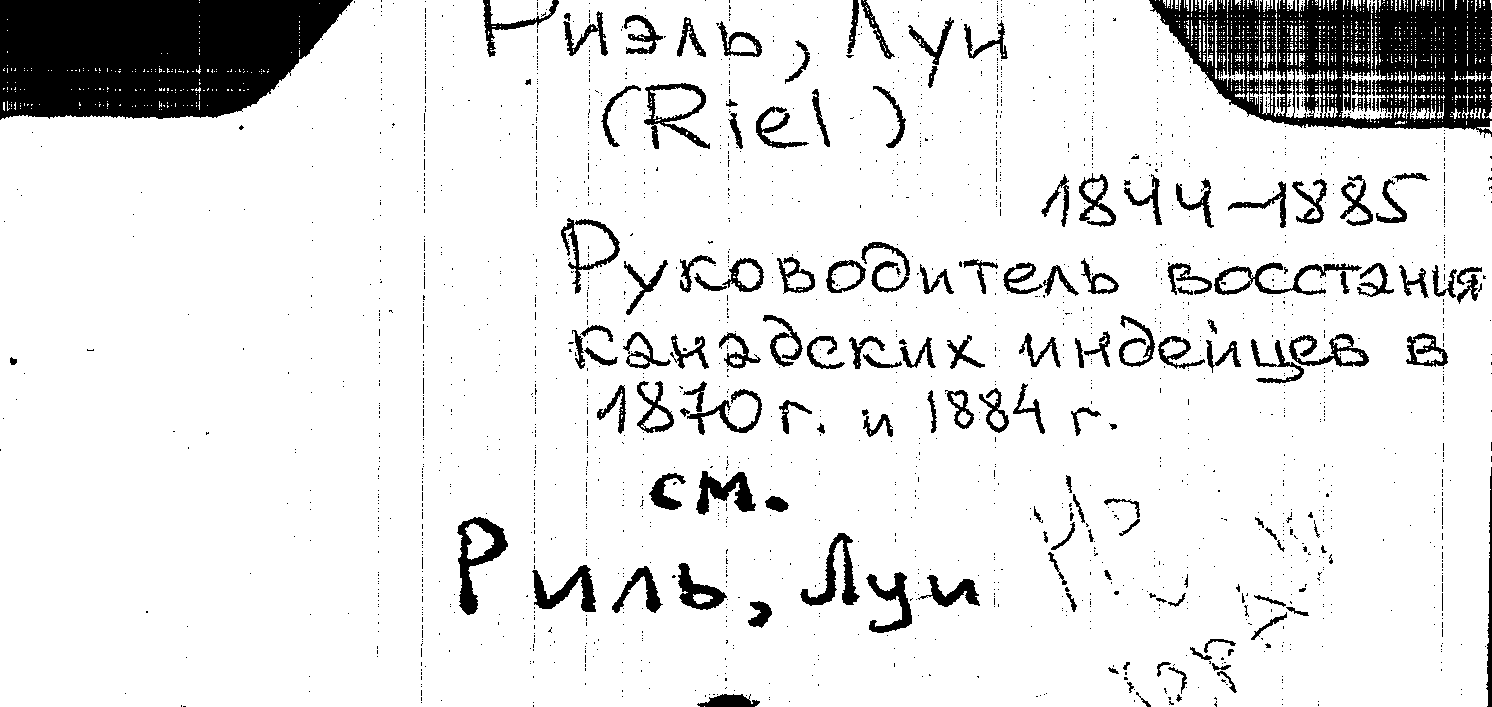 Риэль, Луи
(Riel)
1844-1885
Руководитель восстания
канадских индейцев в
1870 г. и 1884 г.
см.
Риль, Луи